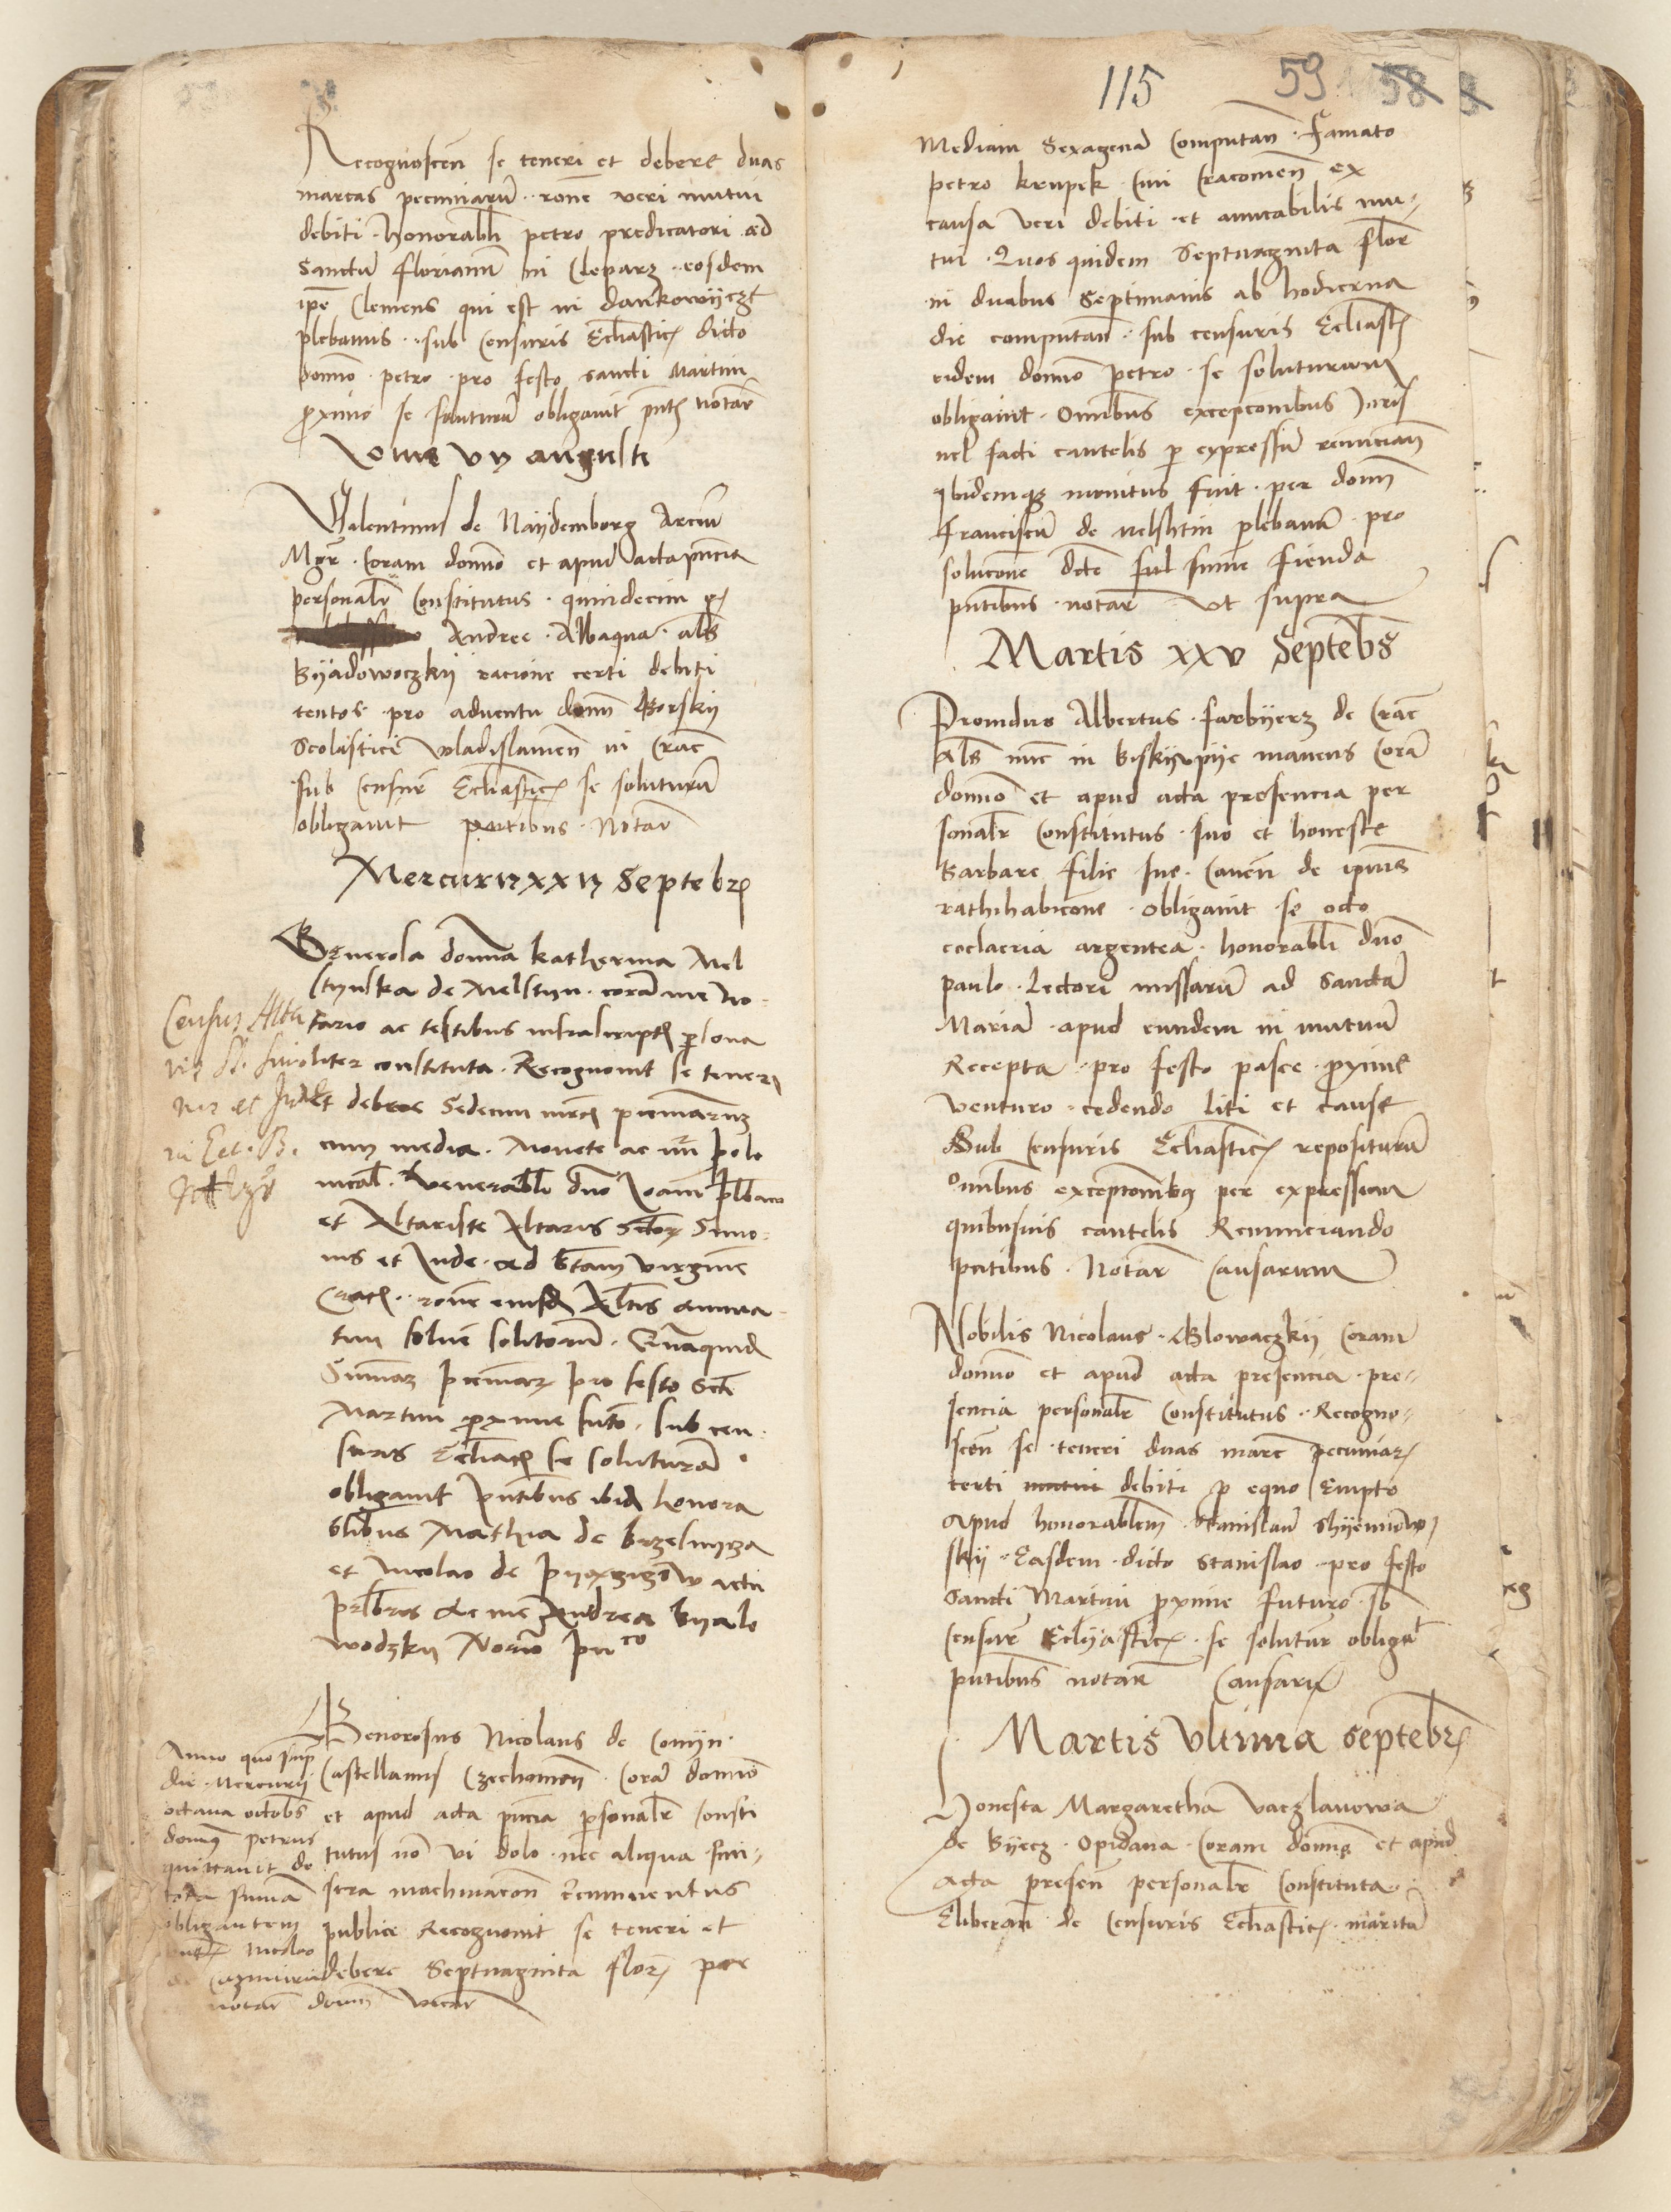 Recognoscen̄ se teneri et debere duas
marcas pecuniarū rōne veri mutui
debiti honorabli petro predicatori ad
Sanctū florianū in Cleparz eosdem
ip̄e Clemens qui est in dankowÿcze
plebanus sub Censuris Ecl̄iastic̄ dicto
domō petro pro festo sancti Martini
proximo se soluturū obligavit pn̄te notar̄
Jovis vij augusti
Valentinus de Naÿdemborg Arciū
Mgr̄ Coram domō et apud acta pn̄cia
personalr̄ Constitutus quindecim
Andree Albaqua al̄s
Byadowoczkij racione certi debiti
tentos pro adventu dom̄ Borskij
Scolastici Wladislavien̄ in Crac̄
sub Censur̄ Ecl̄iastic̄ se soluturū
obligavit pn̄tibus Notar̄
Mercurij xxiij Septēbr̄
Generosa domna Katherina Mel
stynska de Melstyn corā me No
tario ac testibus infrascript̄ persona
liter constituta Recognovit se teneri
et debere Sedecim mrc̄ pecuniarum
cum media Monete ac nūi polo
nical̄ Venerabli dn̄o Joanni plebano
et Altariste Altaris Sctor̄ Simo
nis et Jude ad btam virginē
Crac̄ rōne eiusd̄ Altaris annua
tim solvē solitorū Quāquid̄
Summā pecuniar̄ pro festo Scti
Martini proxime futo sub cen
suris Ecl̄iac̄ se soluturā
obligavit pn̄tibus ibid̄ honora
bilibus Mathia de brzesnycza
et Nicolao de
prb̄ris et me Andrea byalo
wodzky Nor̄io pu^co
Census Alta
ris S. Simo
nis et Jude
in Ecc. B.
Generosus Nicolaus de Comÿn
Castellanus Czechowen̄ Corā domō
et apud acta pn̄cia personalr̄ Consti
tutus nō vi dolo nec aliqua sini
stra machinacōn̄ circumventus
publice Recognovit se teneri et
debere Septuaginta flor̄ per
Anno quo sup̄
die Mercurij
octava octobr̄s
domū petrus
quittavit de
tota sumā
obligantem
Nicolao
de Cazimiria
notar̄ dom̄
115 59 58
Mediam Sexagenā Computan̄ famato
petro krupek Civi Cracovien̄ ex
causa veri debiti et amicabilis mu
tui Quos quidem Septuaginta flor̄
in duabus Septimanis ab hodierna
die computan̄ sub censuris Ecl̄iast̄
eidem domō petro se soluturum
obligavit Omībus excepcionibus Juris
vel facti cautelis p expressū renūcian̄
Ibidemq̄ monitus fuit per dom̄
Franciscū de Melshtin plebanū pro
solucōne dcte sūme fienda
pn̄tibus notar̄ vt supra
Martis xxv Septēbr̄s
Providus Albertus farbÿerz de Crac̄
Al̄s nūc in biskÿpije manens Corā
domō et apud acta presencia per
sonalr̄ Constitutus suo et honeste
Barbare filie sue Caven̄ de ipius
rathihabicōne obligavit se octo
coclearia argentea honorabli dn̄o
paulo Lectori missarū ad Sanctā
Mariā apud eundem in mutuū
Recepta pro festo pasce proxime
venturo cedendo liti et cause
Sub Censuris Ecl̄iastic̄ repositurū
Omībus excepcionibus per expressum
quibusvis cautelis Renunciando
pn̄tibus Notar̄ Causarum
Nobilis Nicolaus Glowaczkij Coram
domō et apud acta presencia pre
sencia personalr̄ Constitutus Recogno
scen̄ se teneri duas marc̄ pecuniar̄
certi mutui debiti p equo Empto
apud honorablem Stanislaū Shÿenow
skij Easdem dicto Stanislao pro festo
Sancti Martini proxime futuro sb
Censur̄ Eclÿastic̄ se solutur̄ obligat
pn̄tibus notar̄ Causarū
Martis Ultima Septebr̄
Honesta Margaretha Vaczlavowa
de Byecz Opidana Coram domō et apud
acta presen̄ personalr̄ Constituta
Eliberan̄ de Censuris Ecl̄iastic̄ maritū